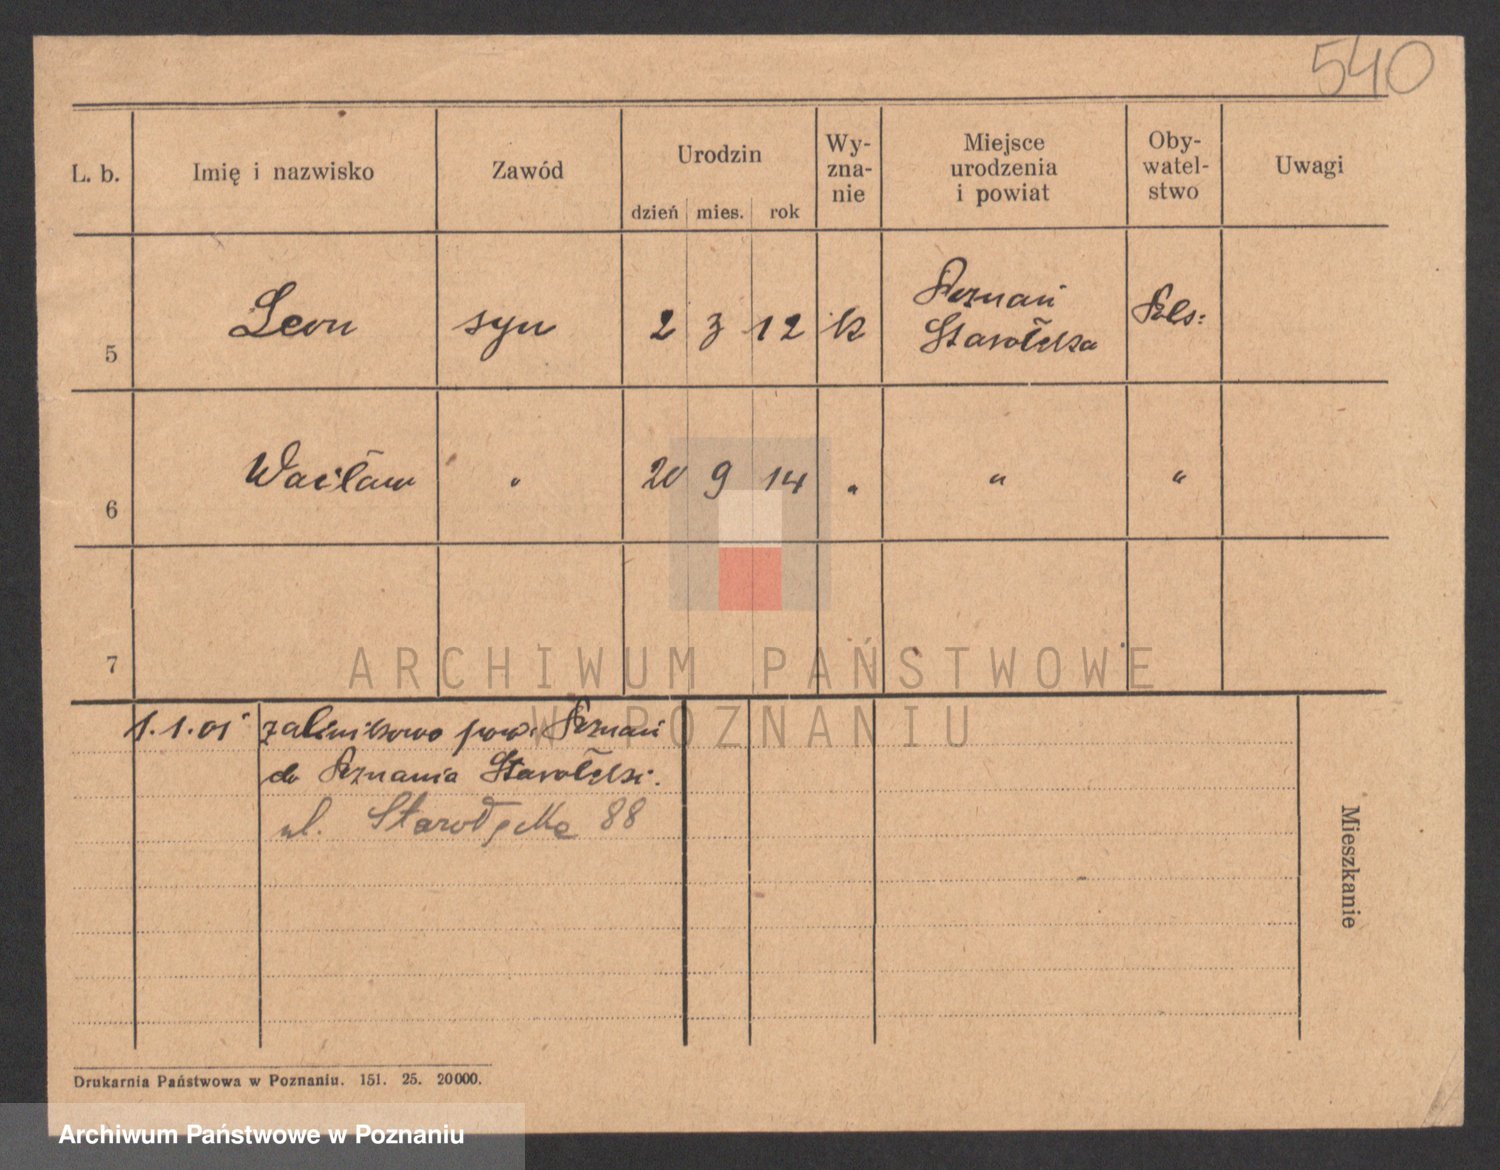 540
L. b. Imię i nazwisko Zawód Urodzin Wy-zna-nie Miejsce urodzenia i powiat Oby-watel-stwo Uwagi
dzień mies. rok
5 Leon syn 2 3 12 k Poznań Starołęka Pols:
6 Wacław " 20 9 14 " " "
7
ARCHIWUM PAŃSTWOWE
W POZNANIU
1.1.01 pow. Poznań
do Poznania Starołęki.
ul. Starołęcka 88
Mieszkanie
Drukarnia Państwowa w Poznaniu. 151. 25. 20000.
Archiwum Państwowe w Poznaniu